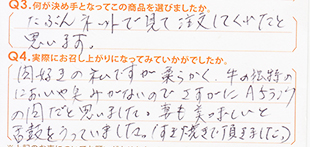 Q3.何が決め手となってこの商品を選びましたか。
たぶんネットで見て注文してくれたと
思います。
Q4.実際にお召し上がりになってみていかがでしたか。
肉好きの私ですが柔らかく、牛の独特の
においや臭みがないのでさすがにA5ランク
の肉だと思いました。妻も美味しいと
舌鼓をうっていました。(すき焼きで頂きました)